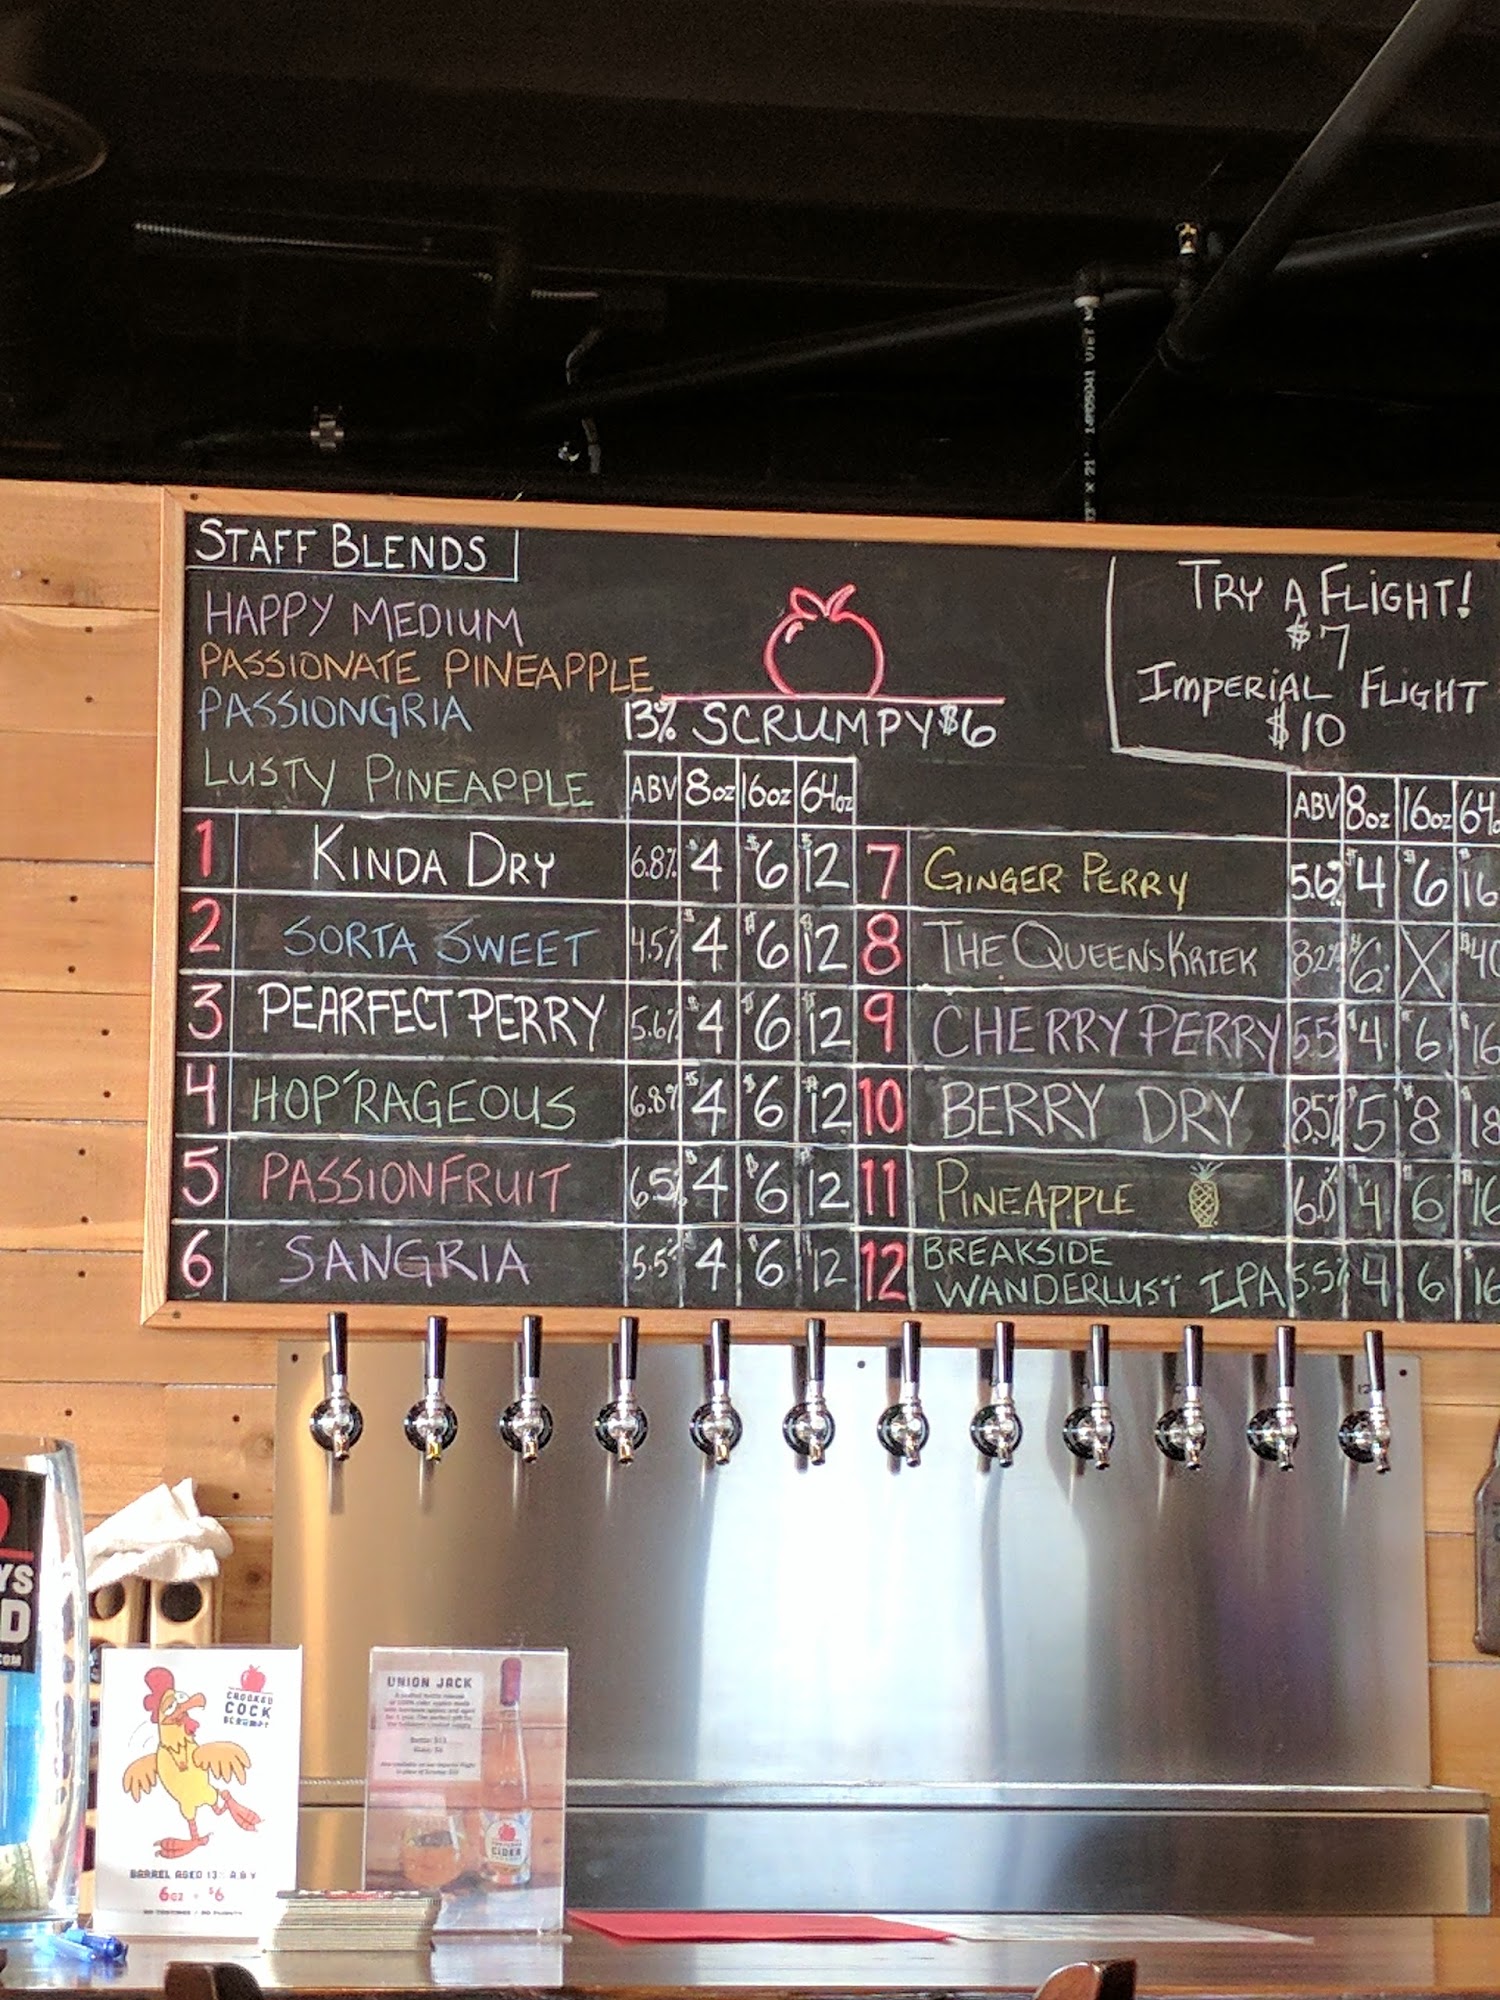 STAFF BLENDS
HAPPY MEDIUM
PASSIONATE PINEAPPLE
PASSIONGRIA
LUSTY PINEAPPLE
13% SCRUMPY $6
TRY A FLIGHT!
$7
IMPERIAL FLIGHT
$10
ABV 8oz 16oz 64oz
1 KINDA DRY 6.8% $4 $6 $12
2 SORTA SWEET 4.5% $4 $6 $12
3 PEARFECT PERRY 5.6% $4 $6 $12
4 HOP'RAGEOUS 6.8% $4 $6 $12
5 PASSIONFRUIT 6.5% $4 $6 $12
6 SANGRIA 5.5% 4 $6 $12
ABV 8oz 16oz 64o
7 GINGER PERRY 5.6% $4 $6 $16
8 THE QUEENS KRIEK 8.2% $6 X $40
9 CHERRY PERRY 5.5 $4 $6 $16
10 BERRY DRY 8.5% $5 $8 $18
11 PINEAPPLE 6.0% $4 $6 $16
12 BREAKSIDE
WANDERLUST IPA 5.5% 4 6 $16
YS
D
COM
CROOKED
COCK
SCRUMPY
BARREL AGED 13% ABV
6oz - $6
UNION JACK
CIDER